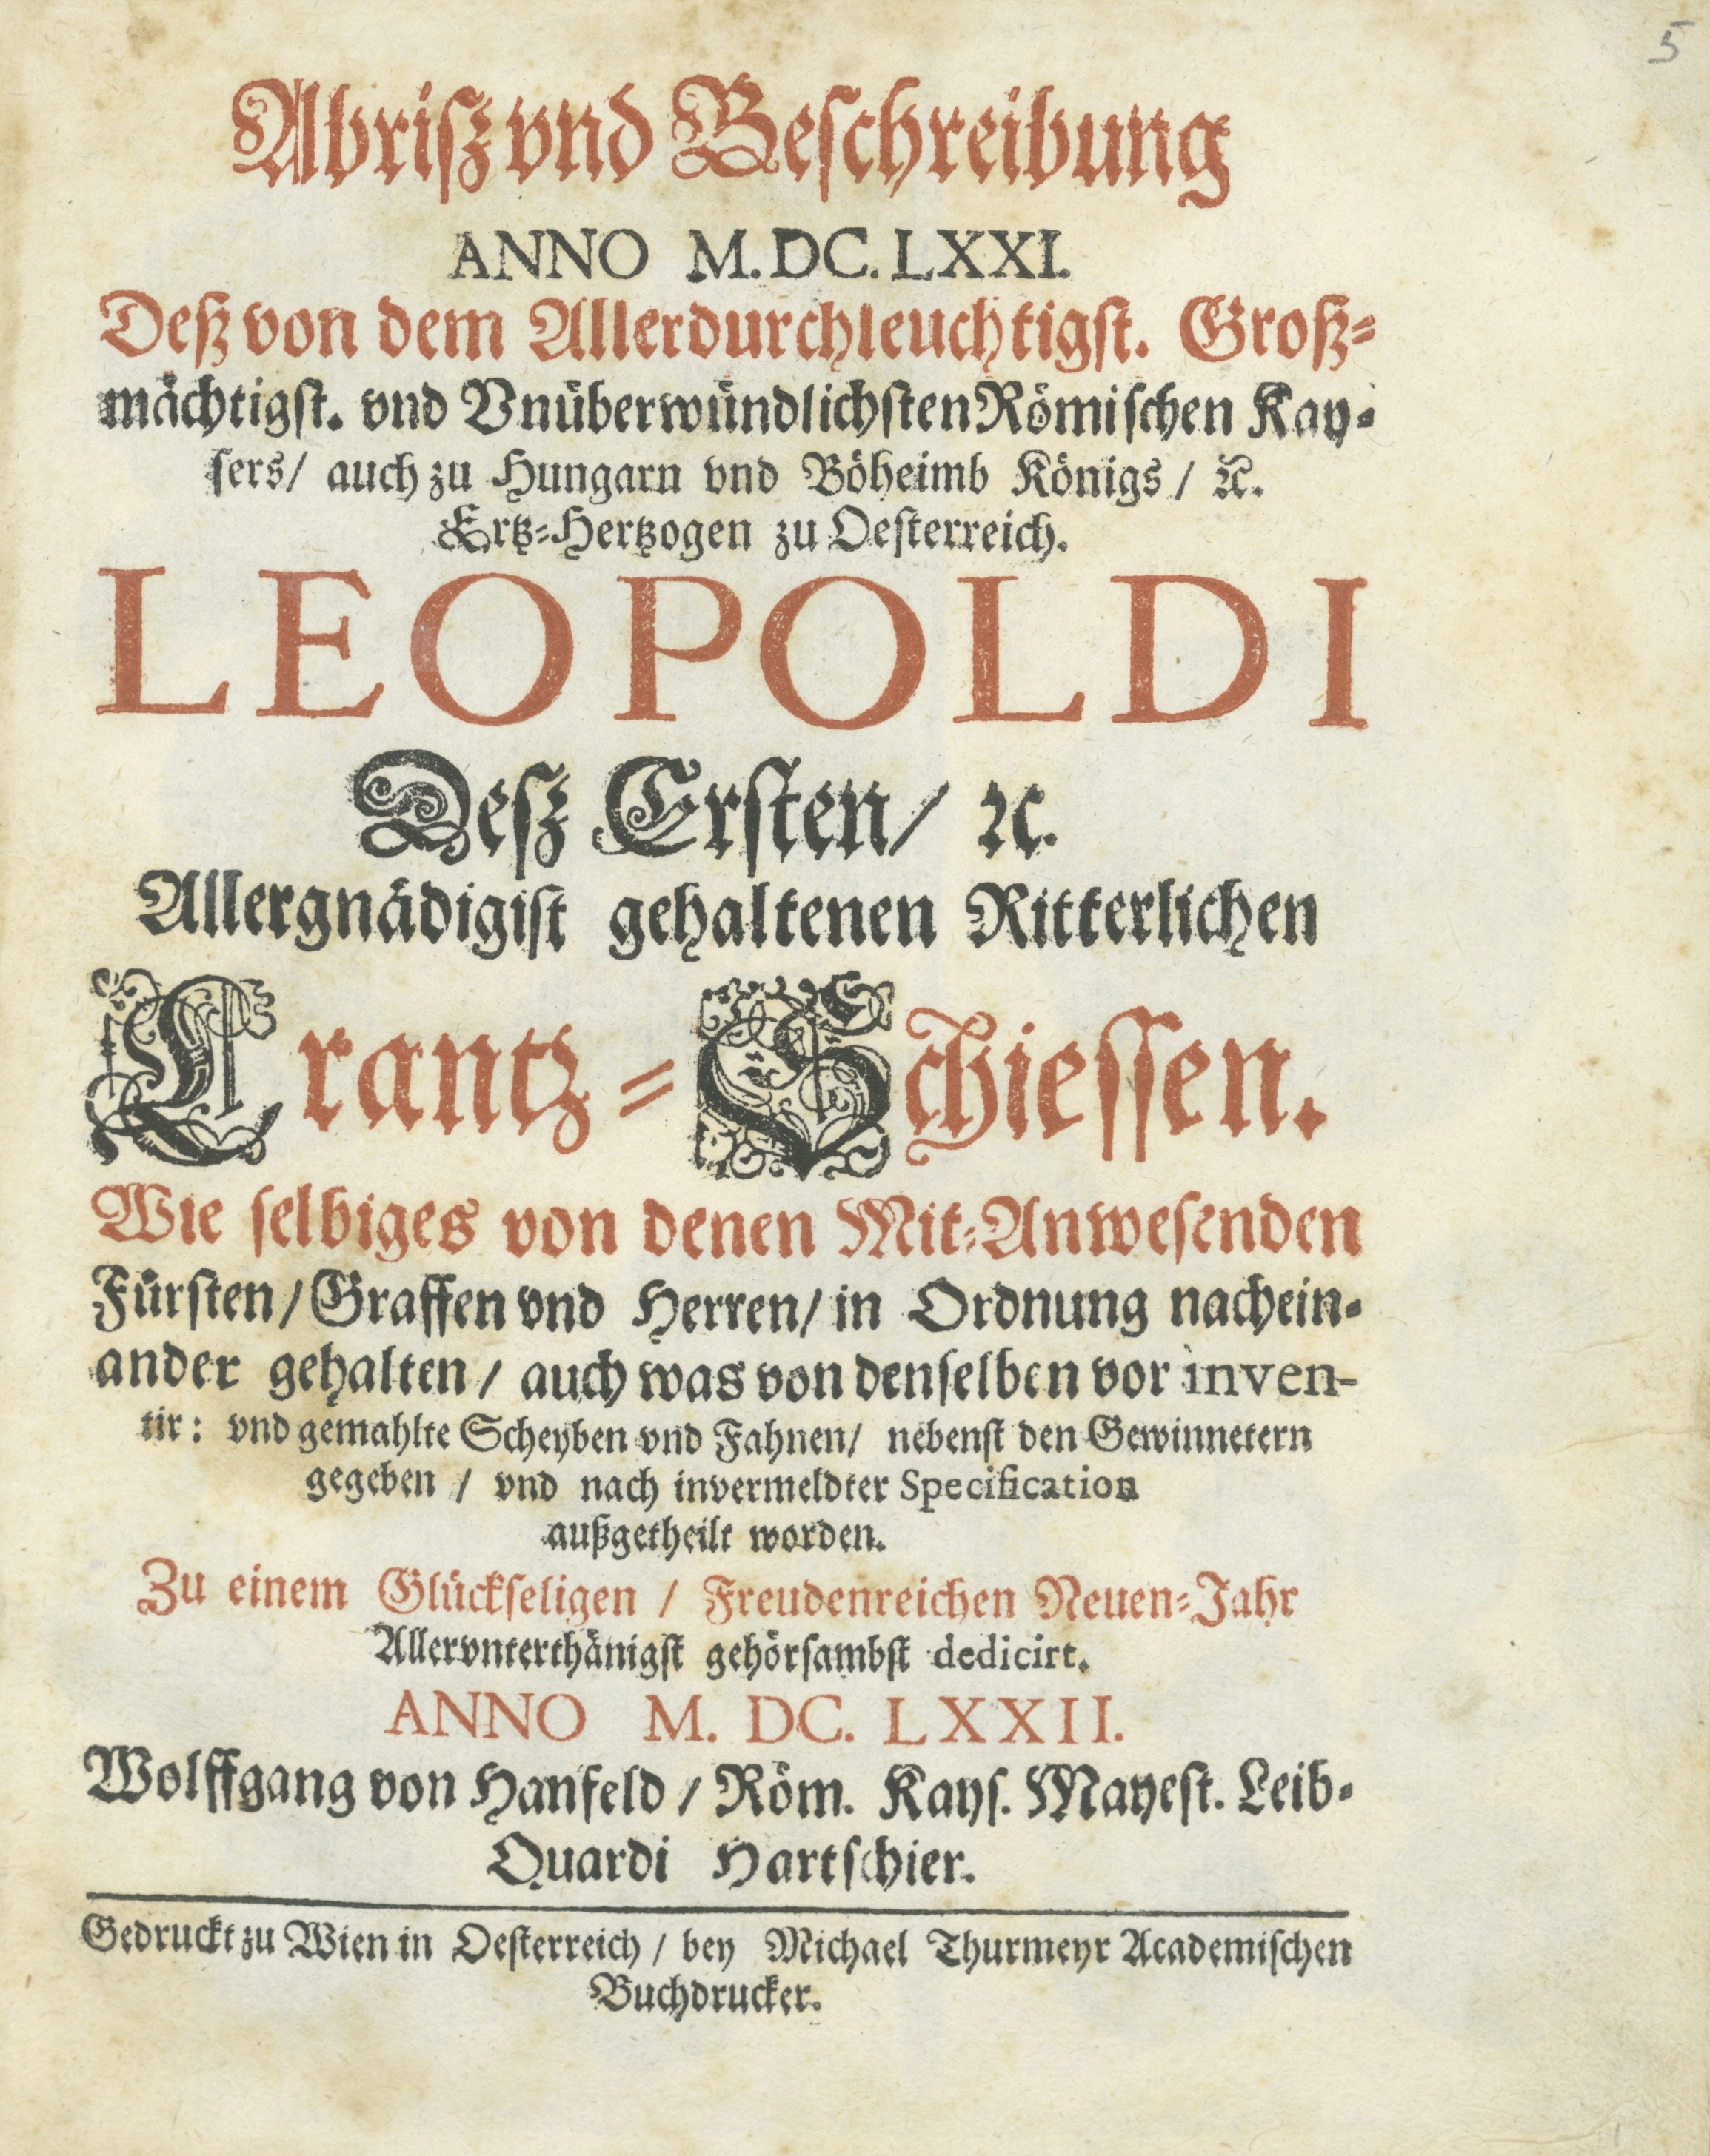 5
Abrisz vnd Beschreibung
ANNO M.DC.LXXI.
Deß von dem Allerdurchleuchtigst. Groß-
mächtigst. vnd Vnüberwündlichsten Römischen Kay-
sers/ auch zu Hungarn vnd Böheimb Königs/ ꝛc.
Ertz-Hertzogen zu Oesterreich.
LEOPOLDI
Desz Ersten/ ꝛc.
Allergnädigist gehaltenen Ritterlichen
Krantz-Schiessen.
Wie selbiges von denen Mit-Anwesenden
Fürsten/Graffen vnd Herren/ in Ordnung nachein-
ander gehalten/ auch was von denselben vor inven-
tir: vnd gemahlte Scheyben vnd Fahnen/ nebenst den Gewinnetern
gegeben / vnd nach invermeldter Specification
außgetheilt worden.
Zu einem Glückseligen / Freudenreichen Neuen-Jahr
Allervnterthänigst gehörsambst dedicirt.
ANNO M. DC. LXXII.
Wolffgang von Hanfeld / Röm. Kays. Mayest. Leib-
Quardi Hartschier.
Gedruckt zu Wien in Oesterreich / bey Michael Thurmeyr Academischen
Buchdrucker.